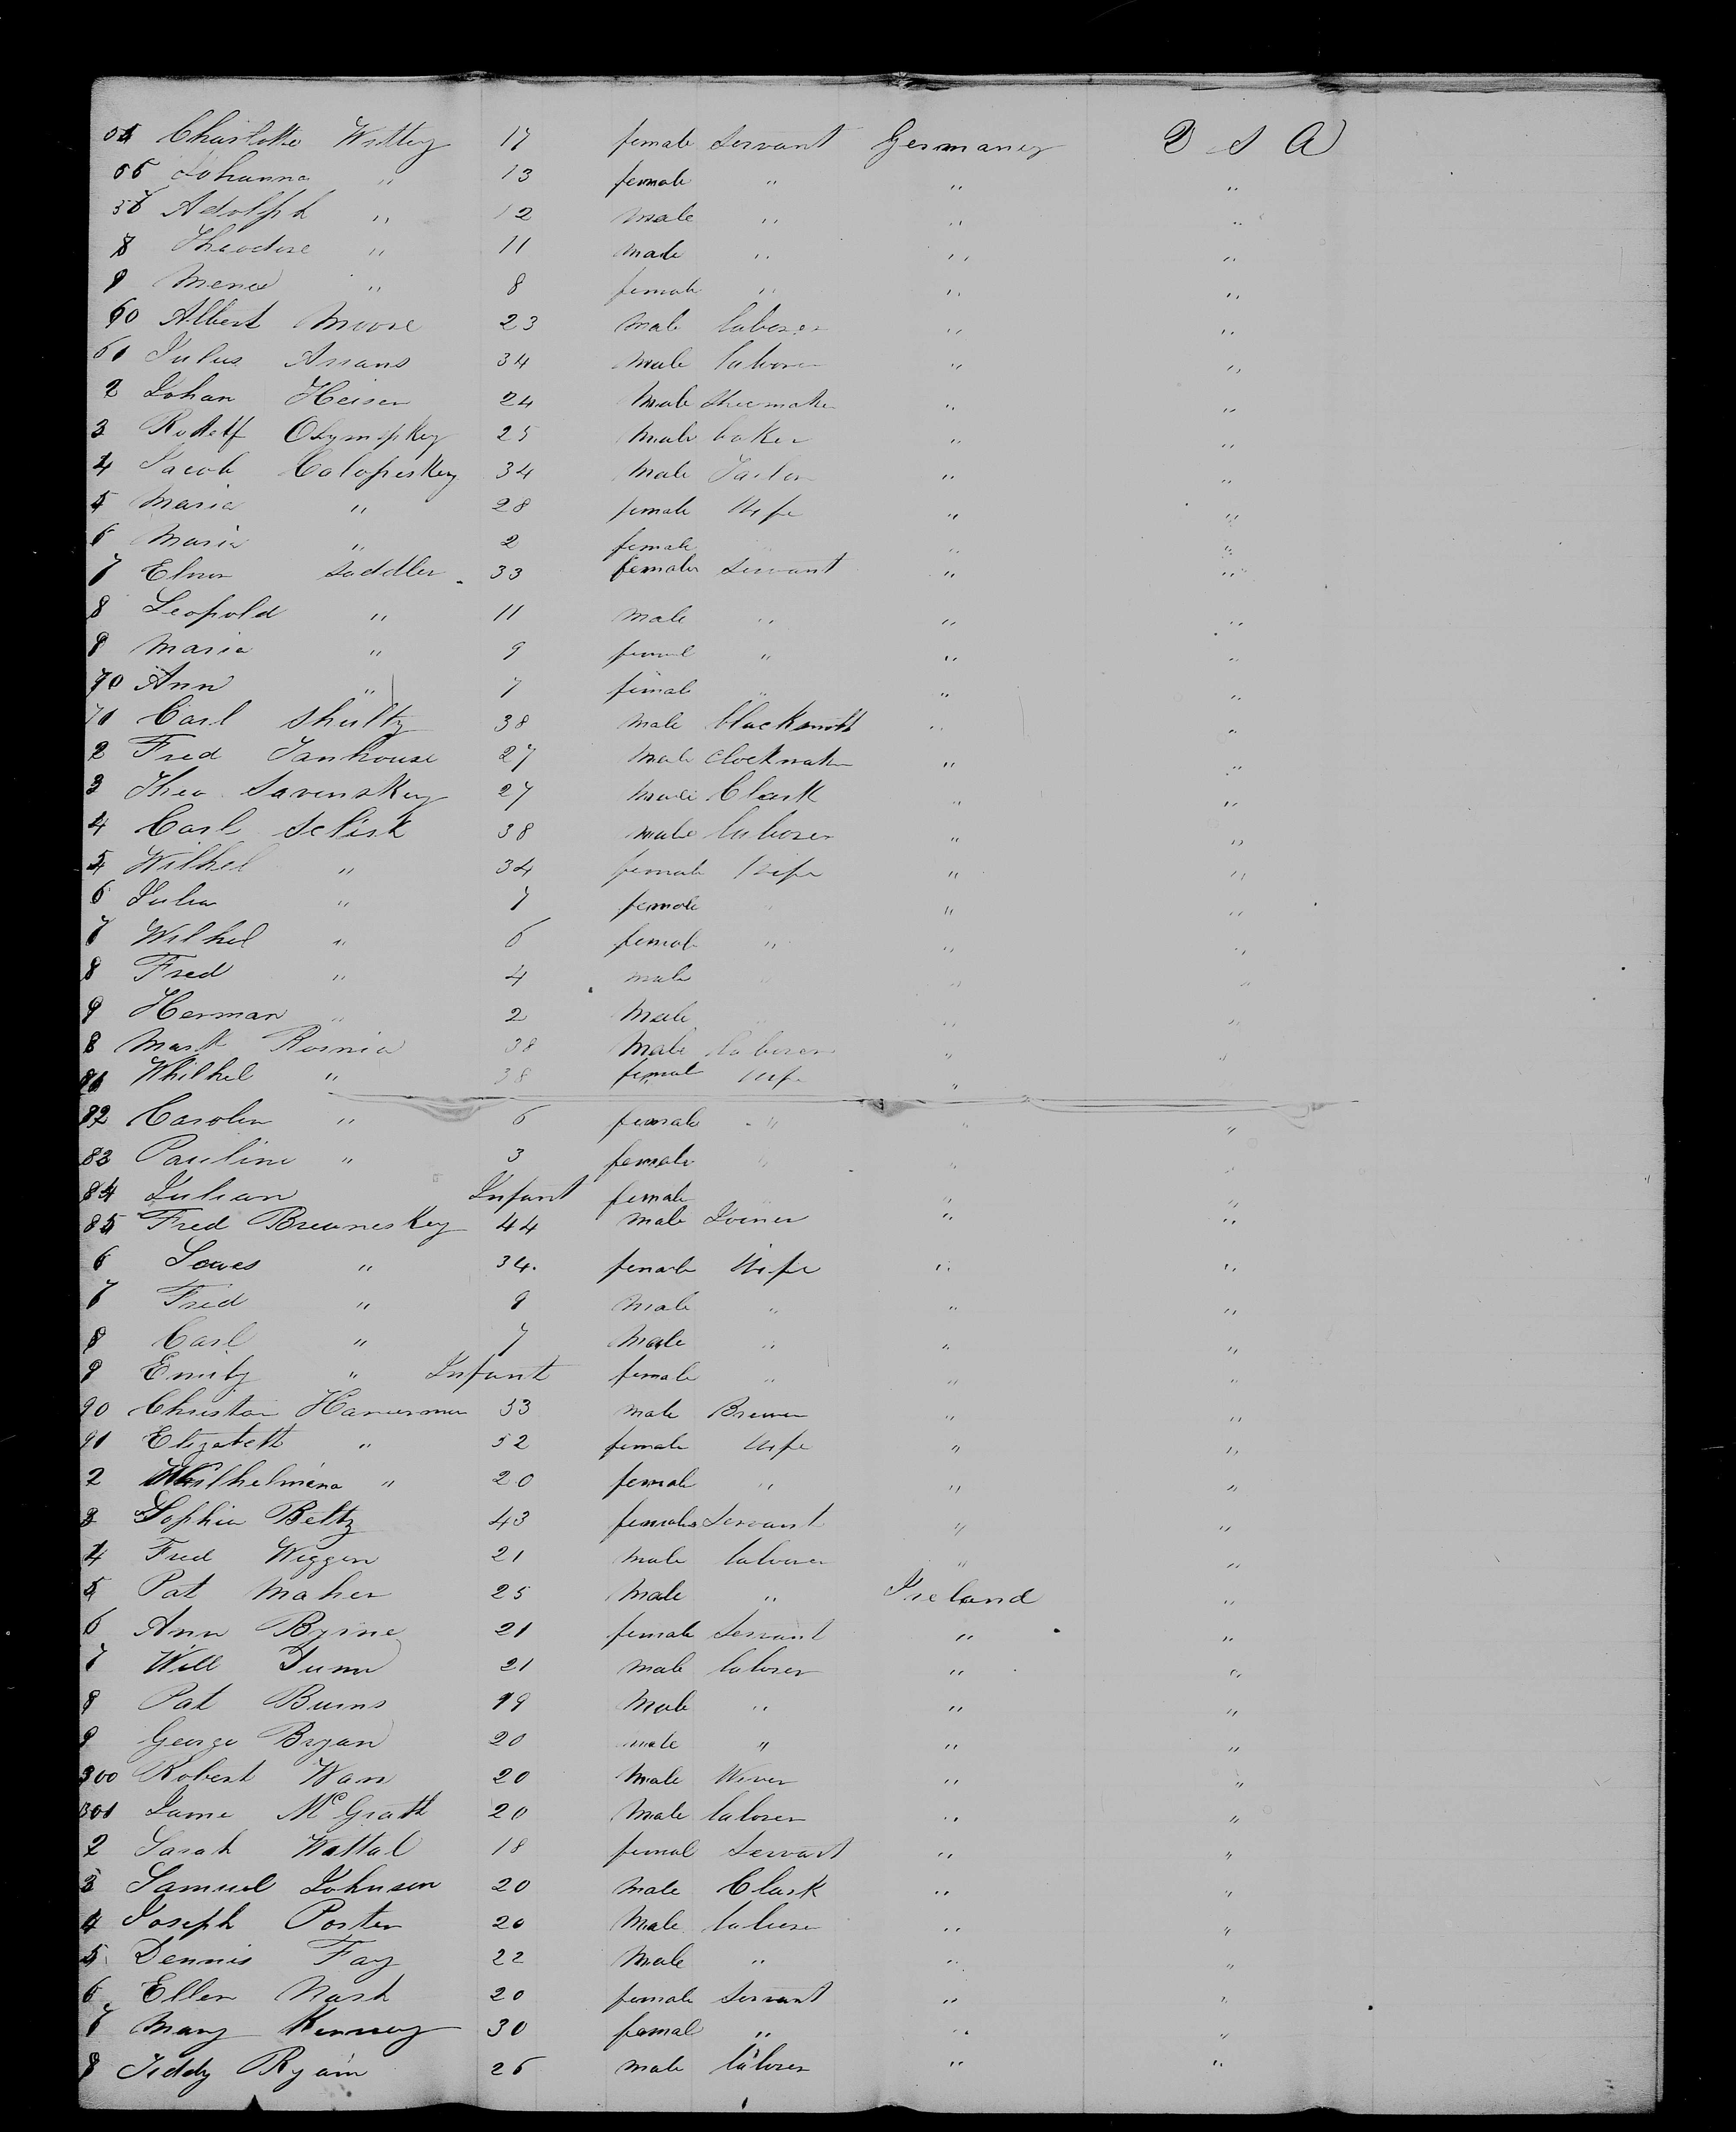 55 Charlotte Wittey 17 female Servant Germaney U S A
56 Johanna " 13 female " " "
57 Adolph " 12 male " " "
8 Theodore " 11 male " " "
9 Mena " 8 female " " "
60 Albert Moore 23 male laborer " "
61 Julus Assans 34 male laborer " "
2 Johan Heisen 24 male Shoemaker " "
3 Rodolf Olympskey 25 male baker " "
4 Jacob Calopeskey 34 male Tailor " "
5 Maria " 28 female Wife " "
6 Maria " 2 female " " "
7 Elnor Saddler 33 female Servant " "
8 Leopold " 11 male " " "
9 Maria " 9 femal " " "
70 Ann " 7 female " " "
71 Carl Shultz 38 male blacksmith " "
2 Fred Janhouse 27 male Clockmaker " "
3 Theo Savenskey 27 male Clark " "
4 Carl Selisk 38 male laborer " "
5 Wilhel " 34 female Wife " "
6 Julia " 7 female " " "
7 Wilhel " 6 female " " "
8 Fred " 4 male " " "
9 Herman " 2 male " " "
8 Mark Rosnia 38 male laborer " "
81 Whilhel " 38 female Wife " "
82 Carolin " 6 female " " "
83 Pauline " 3 female " " "
84 Julian Infant female " " "
85 Fred Brewneskey 44 male Joiner " "
6 Lowes " 34 female Wife " "
7 Fred " 9 male " " "
8 Carl " 7 male " " "
9 Emily " Infant female " " "
90 Christian 53 male Brewer " "
91 Elizabeth " 52 female Wife " "
2 Whilhelmena " 20 female " " "
3 Sophia Beltz 43 female Servant " "
4 Fred Wiggen 21 male laborer " "
5 Pat Maher 25 male " Ireland "
6 Ann Byrne 21 female Servant " "
7 Will Dunn 21 male laborer " "
8 Pat Burns 19 male " " "
9 George Bryan 20 male " " "
300 Robert Wan 20 male Wiver " "
301 Jame McGrath 20 male laborer " "
2 Sarah Wattal 18 femal Servant " "
3 Samuel Johnson 20 male Clark " "
4 Joseph Porter 20 male laborer " "
5 Dennis Fay 22 male " " "
6 Ellen Nash 20 female Servant " "
7 Mary Kenney 30 femal " " "
8 Teddy Ryain 26 male laborer " "